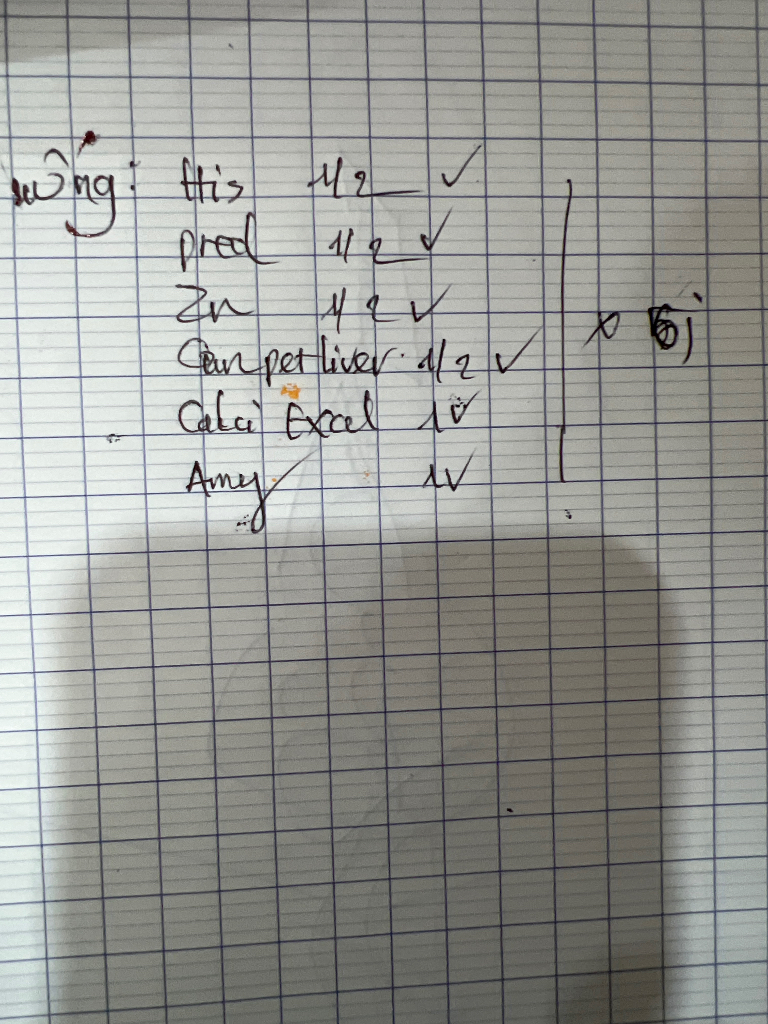 uống: His 1/2 ✓
pred 1/2 ✓
Zn 1/2 ✓
Canpetliver 1/2 ✓
Calci Excel 1 ✓
Amy 1 ✓
x j